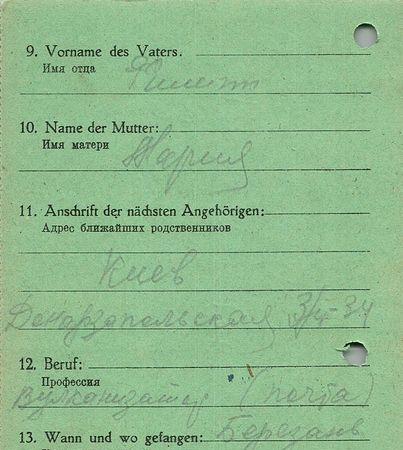 9. Vorname des Vaters.
Имя отца
Филипп
10. Name der Mutter:
Имя матери
Мария
11. Anschrift der nächsten Angehörigen:
Адрес ближайших родственников
Киев
3/IV-34
12. Beruf:
Профессия
Вулканизатор (почта)
13. Wann und wo gefangen: Березань